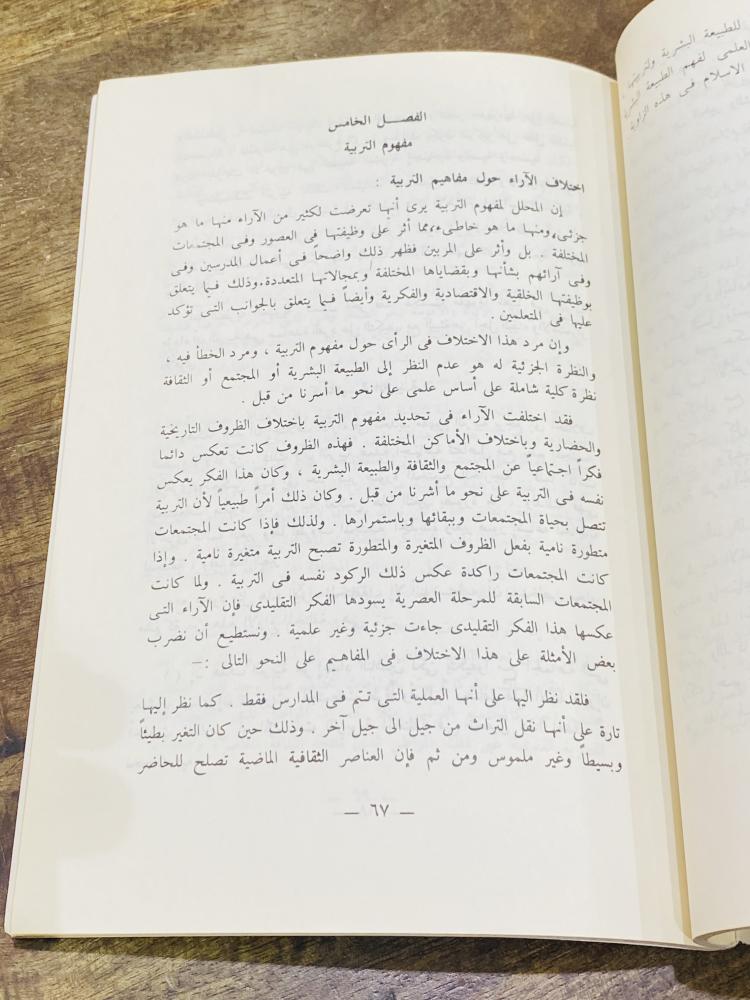 الفصـــل الخامس
مفهوم التربية
اختلاف الآراء حول مفاهيم التربية :
إن المحلل لمفهوم التربية يرى أنها تعرضت لكثير من الآراء منها ما هو
جزئى،ومنها ما هو خاطىء،مما أثر على وظيفتها فى العصور وفى المجتمعات
المختلفة . بل وأثر على المربين فظهر ذلك واضحاً فى أعمال المدرسين وفى
وفى آرائهم بشأنها وبقضاياها المختلفة وبمجالاتها المتعددة.وذلك فيما يتعلق
بوظيفتها الخلقية والاقتصادية والفكرية وأيضاً فيما يتعلق بالجوانب التى تؤكد
عليها فى المتعلمين .
وإن مرد هذا الاختلاف فى الرأى حول مفهوم التربية ، ومرد الخطأ فيه ،
والنظرة الجزئية له هو عدم النظر إلى الطبيعة البشرية أو المجتمع أو الثقافة
نظرة كلية شاملة على أساس علمى على نحو ما أسرنا من قبل .
فقد اختلفت الآراء فى تحديد مفهوم التربية باختلاف الظروف التاريخية
والحضارية وباختلاف الأماكن المختلفة . فهذه الظروف كانت تعكس دائما
فكراً اجتماعياً عن المجتمع والثقافة والطبيعة البشرية ، وكان هذا الفكر يعكس
نفسه فى التربية على نحو ما أشرنا من قبل . وكان ذلك أمراً طبيعياً لأن التربية
تتصل بحياة المجتمعات وببقائها وباستمرارها . ولذلك فإذا كانت المجتمعات
متطورة نامية بفعل الظروف المتغيرة والمتطورة تصبح التربية متغيرة نامية . وإذا
كانت المجتمعات راكدة عكس ذلك الركود نفسه فى التربية . ولما كانت
المجتمعات السابقة للمرحلة العصرية يسودها الفكر التقليدى فإن الآراء التى
عكسها هذا الفكر التقليدى جاءت جزئية وغير علمية . ونستطيع أن نضرب
بعض الأمثلة على هذا الاختلاف فى المفاهيم على النحو التالى :–
فلقد نظر اليها على أنها العملية التى تتم فى المدارس فقط . كما نظر إليها
تارة على أنها نقل التراث من جيل الى جيل آخر . وذلك حين كان التغير بطيئاً
وبسيطاً وغير ملموس ومن ثم فإن العناصر الثقافية الماضية تصلح للحاضر
— ٦٧ —
للطبيعة البشرية ولتربيتها .
العلمى لفهم الطبيعة البشر
الاسلام فى هذه الزاوية